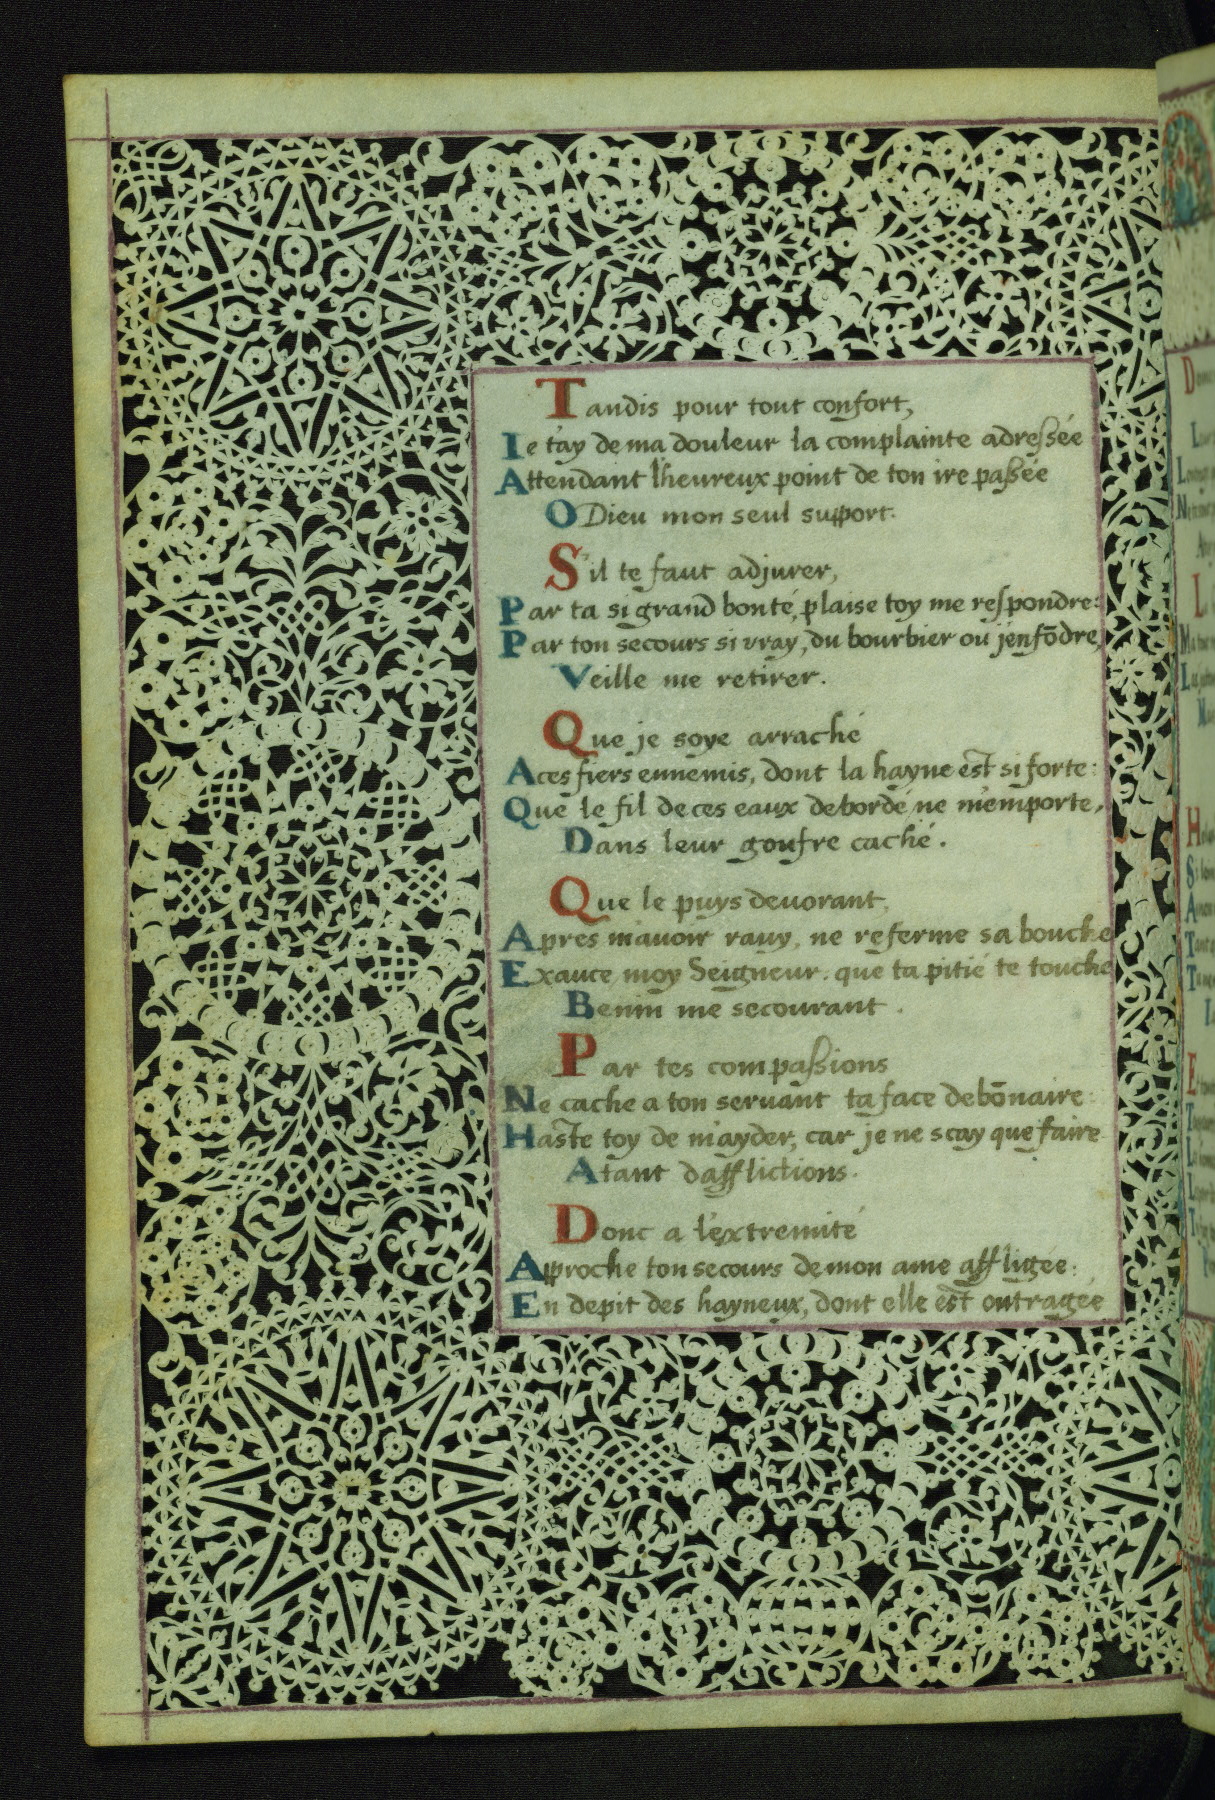 Tandis pour tout confort,
Ie t'ay de ma douleur la complainte adressée
Attendant l'heureux point de ton ire passée
O Dieu mon seul support.
S'il te faut adjurer,
Par ta si grand bonté, plaise toy me respondre:
Par ton secours si vray, du bourbier ou j'enfõdre,
Veille me retirer.
Que je soye arraché
A ces fiers ennemis, dont la hayne est si forte:
Que le fil de ces eaux debordé ne m'emporte,
Dans leur goufre caché.
Que le puys deuorant,
Apres m'auoir rauy, ne referme sa bouche
Exauce moy Seigneur. que ta pitié te touche
Benin me secourant.
Par tes compassions
Ne cache a ton seruant ta face debõnaire:
Haste toy de m'ayder, car je ne scay que faire
A tant d'afflictions.
Donc a l'extremité
Approche ton secours de mon ame affligée:
En depit des hayneux, dont elle est outragée